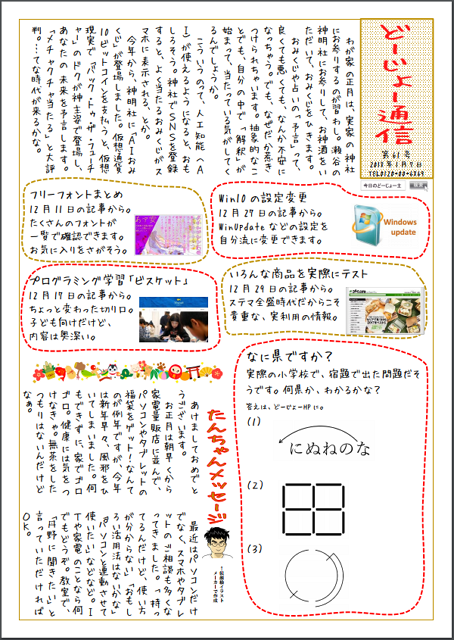 どーじょー通信
第61号
2018年1月5日
TEL0120-00-6369
今日のどーじょー主
わが家の正月は、実家の神社
にお寄りするのが習わし。瀬谷の
神明社にお参りして、お神酒をい
ただいて、おみくじをひきます。
おみくじや占いの「予言」って、
良くても悪くても、なんか不安に
なっちゃう。でも、なぜだか惹き
つけられちゃいます。抽象的なこ
とでも、自分の中で「解釈」が
始まって、当たっている気がしてく
るんでしょうか。
こういうのって、人工知能(A
I)が使えるようになると、おも
しろそう。神社でSNSを登録
すると、よく当たるおみくじがス
マホに表示される、とか。
今年から、神明社に「AIおみ
くじ」が登場しました。仮想通貨
10ビットコインを支払うと、仮想
現実で「バック・トゥ・ザ・フューチ
ャー」のドクが神主姿で登場し、
あなたの未来を予言します。
「メチャクチャ当たる」と大評
判。…てな時代が来るかな。
Win10の設定変更
12月27日の記事から。
WinUpdateなどの設定を
自分流に変更できます。
Windows
update
フリーフォントまとめ
12月11日の記事から。
たくさんのフォントが
一覧で確認できます。
お気に入りをさがそう。
いろんな商品を実際にテスト
12月29日の記事から。
ステマ全盛時代だからこそ
貴重な、実利用の情報。
プログラミング学習「ビスケット」
12月19日の記事から。
ちょっと変わった切り口。
子ども向けだけど、
内容は奥深い。
なに県ですか?
実際の小学校で、宿題で出た問題だそ
うです。何県か、わかるかな?
答えは、どーじょーHPに。
(1)
にぬねのな
(2)
(3)
たんちゃんメッセージ
あけましておめでと
うございます。
お正月は朝早くから
家電量販店に並んで、
パソコンやタブレットの
福袋をゲット!なんて
のが例年ですが、今年
は新年早々、風邪をひ
いてしまいました。何
もできずに、家でゴロ
ゴロ。健康には気をつ
けなきゃ。無茶をした
つもりはないんだけど
なぁ。
最近はパソコンだけ
でなく、スマホやタブレ
ットのご相談も多くな
ってきました。「持っ
てるんだけど、使い方
が分からない」「おもし
ろい活用法はないかな」
「パソコンと連動させて
使いたい」などなど。I
Tや家電のことなら、何
でもどうぞ。教室で、
「丹野に聞きたい」と
言っていただければ
OK。